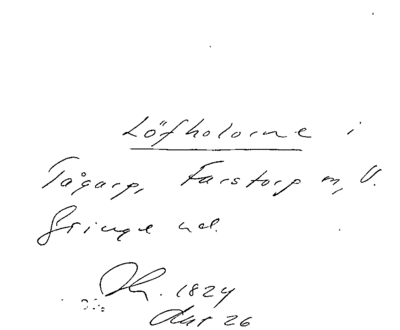 Löfholorne i
Tågarp, Farstorp m, V.
Gringe hd.
Kr. 1824
Aur 26